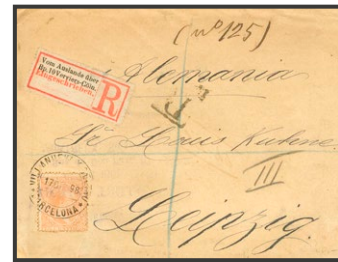 (nº 125)
Alemania
Vom Auslande über
Bp. 10 Verviers-Cöln.
Eingeschrieben.
R
Sr Louis Kuhne
III
Leipzig.
BARCELONA